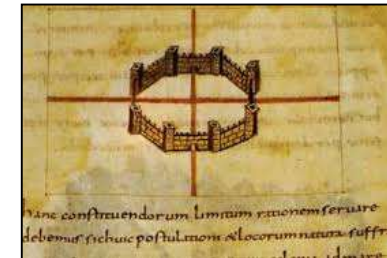 hanc constituendorum limitum rationem servare
debemus si huic postulationi & locorum natura suffr